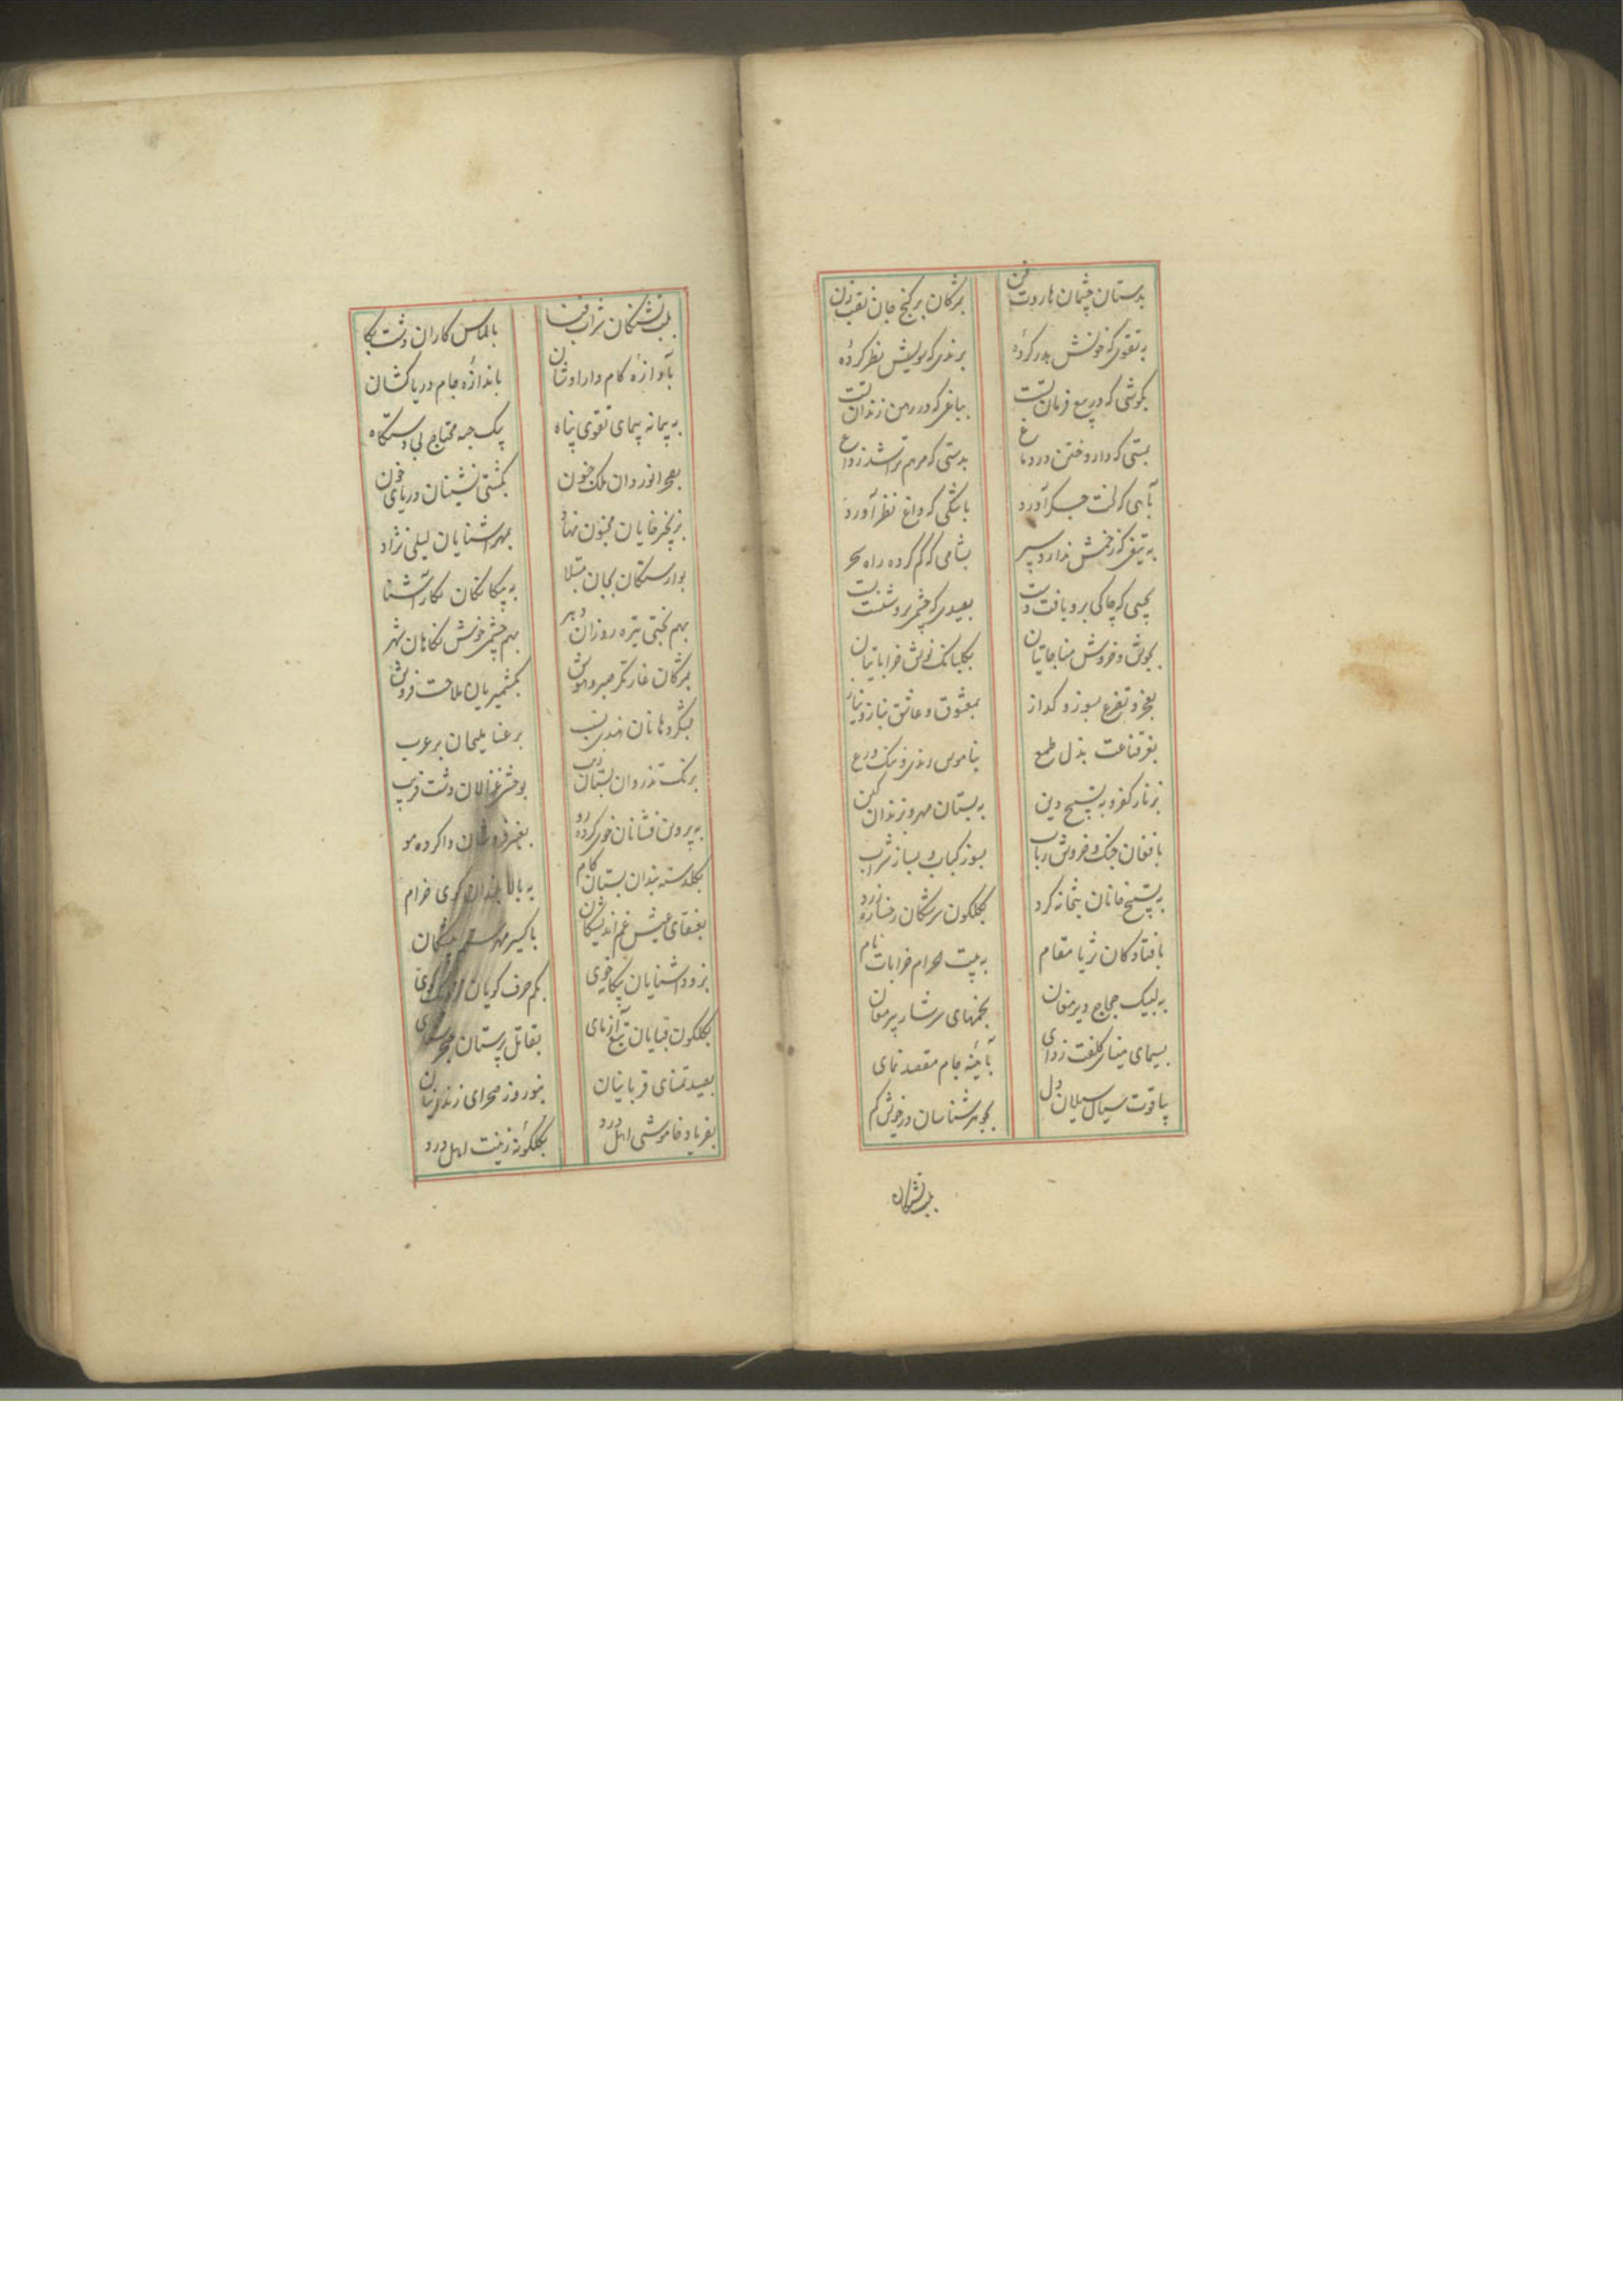 بدستان چشمان هاروت فن
بمژکان بر کنج جان نقب زن
به تقوی که خونش هدر کردهٔ
برندی که سویش نظر کردهٔ
بکوشی که در بیع فرمان تست
بباغی که در رهن زندان تست
بستی که دارو ختن در دماغ
بدستی که مرهم تراشد ز داغ
آهی که لخت جکر آورد
باشکی که داغ نظر آورد
به تیغی که زخمش ندارد سپر
بشامی که کم کرده راه سحر
بجیبی که چاکی برو یافت دست
بعیدی که چشم برو
بجوش و خروش مناجاتیان
بکلبانک نوش خراباتیان
بعجز و تضرع بسوز و کداز
بمعشوق و عاشق بناز و نیاز
بفر قناعت بذل طمع
بناموس رندی و ننک ورع
بزنار کفر و به تسبیح دین
به بستان مهر و بزندان کین
بافغان چنک و خروش رباب
بسوز کباب و بساز شراب
به تسبیح خانان بتخانه کرد
بکلکون سرشکان رخساره زرد
بافتادکان ثریا مقام
به بیت الحرام خرابات نام
به لبیک حجاج دیر مغان
بخمهای سرشار پیر مغان
بسیمای مینای کلفت زدای
بآئینه جام مقصد نمای
بیاقوت سیال سیلان دل
بجوهر شناسان در خویش کم
بلب تشنکان
بلب تشنکان شراب فنا
بالماس کاران دشت بکا
بآوازهٔ کام دارا وشان
باندازهٔ جام دریا کشان
به پیمانه پیمای تقوی پناه
بیک جبه محتاج بی دستکاه
بصحرا نوردان ملک جنون
بکشتی نشینان دریای خون
بزنجیر خایان مجنون نهاد
بمهر آشنایان لیلی نژاد
بوارستکان بجان مبتلا
به بیکانکان نکار آشنا
بهم بختی تیره روزان دهر
بهم چشم خوش نکاهان شهر
بمژکان غارتکر صبر و هوش
بکشمیریان ملاحت فروش
بشکر دهانان هندی نسب
برعنا ملیحان بر عرب
برنک تذروان بستان زیب
بوحشی غزالان دشت فریب
به پروین فشانان خوی کرده رو
بعنبر فروشان وا کرده مو
بکلدسته بندان بستان کام
به بالا بلندان خرام
بعنقای عیش غم اندیشکان
باکسیر مهر
بزود آشنایان بیکانه خوی
بکم حرف کویان
بکلکون قبایان تیغ آزمای
بقاتل پرستان
بعید تمنای قربانیان
بنوروز صحرای زندانیان
بفریاد خاموشی اهل درد
بکلکونهٔ زینت اهل درد